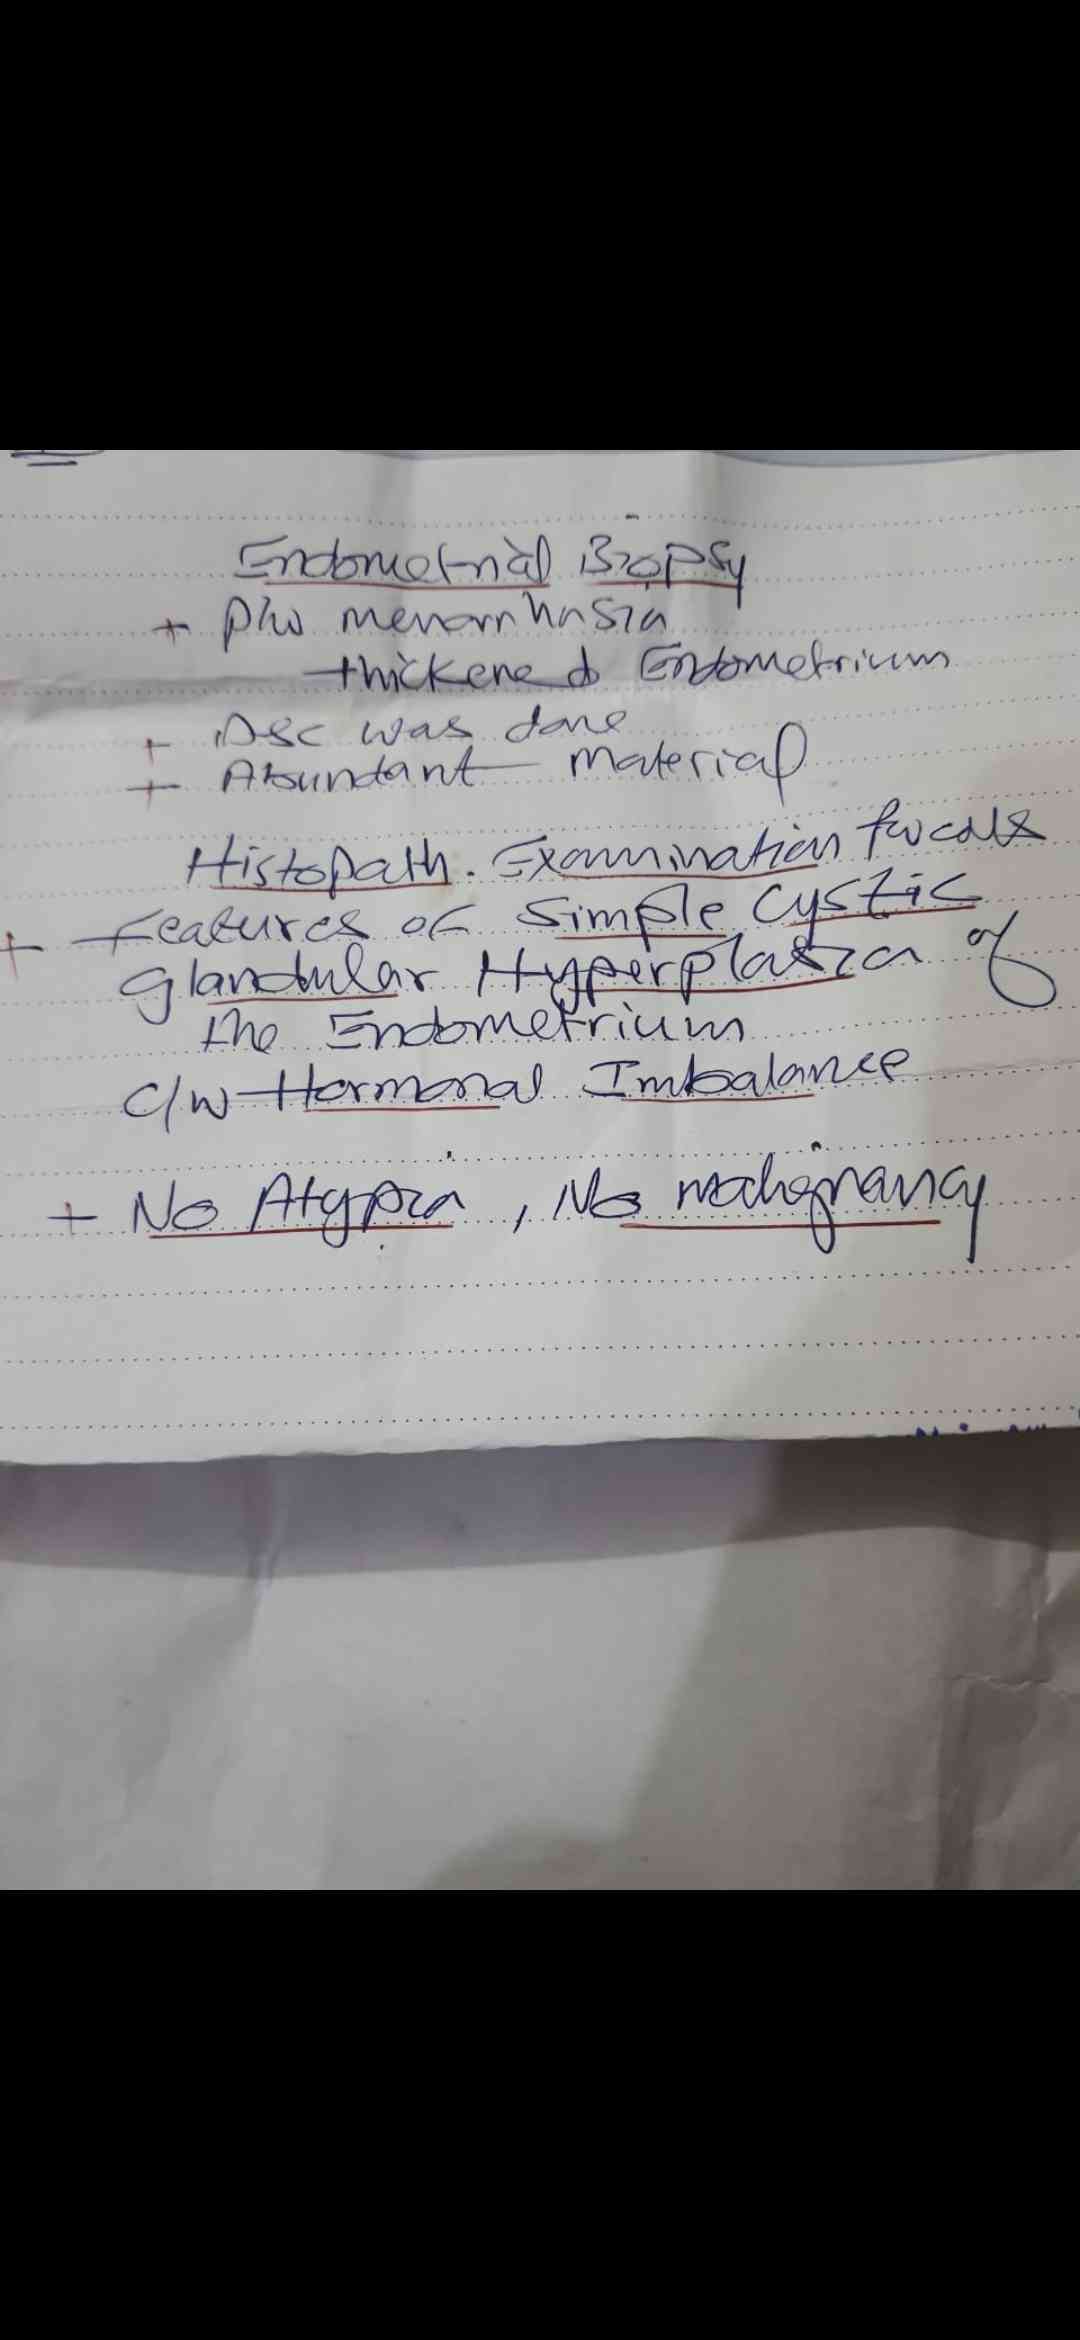 Endometrial Biopsy
+ P/w menorrhagia
thickened Endometrium
+ D&C was done
+ Abundant material
Histopath. Examination
+ Features of Simple Cystic
glandular Hyperplasia of
the Endometrium
c/w Hormonal Imbalance
+ No Atypia, No malignancy